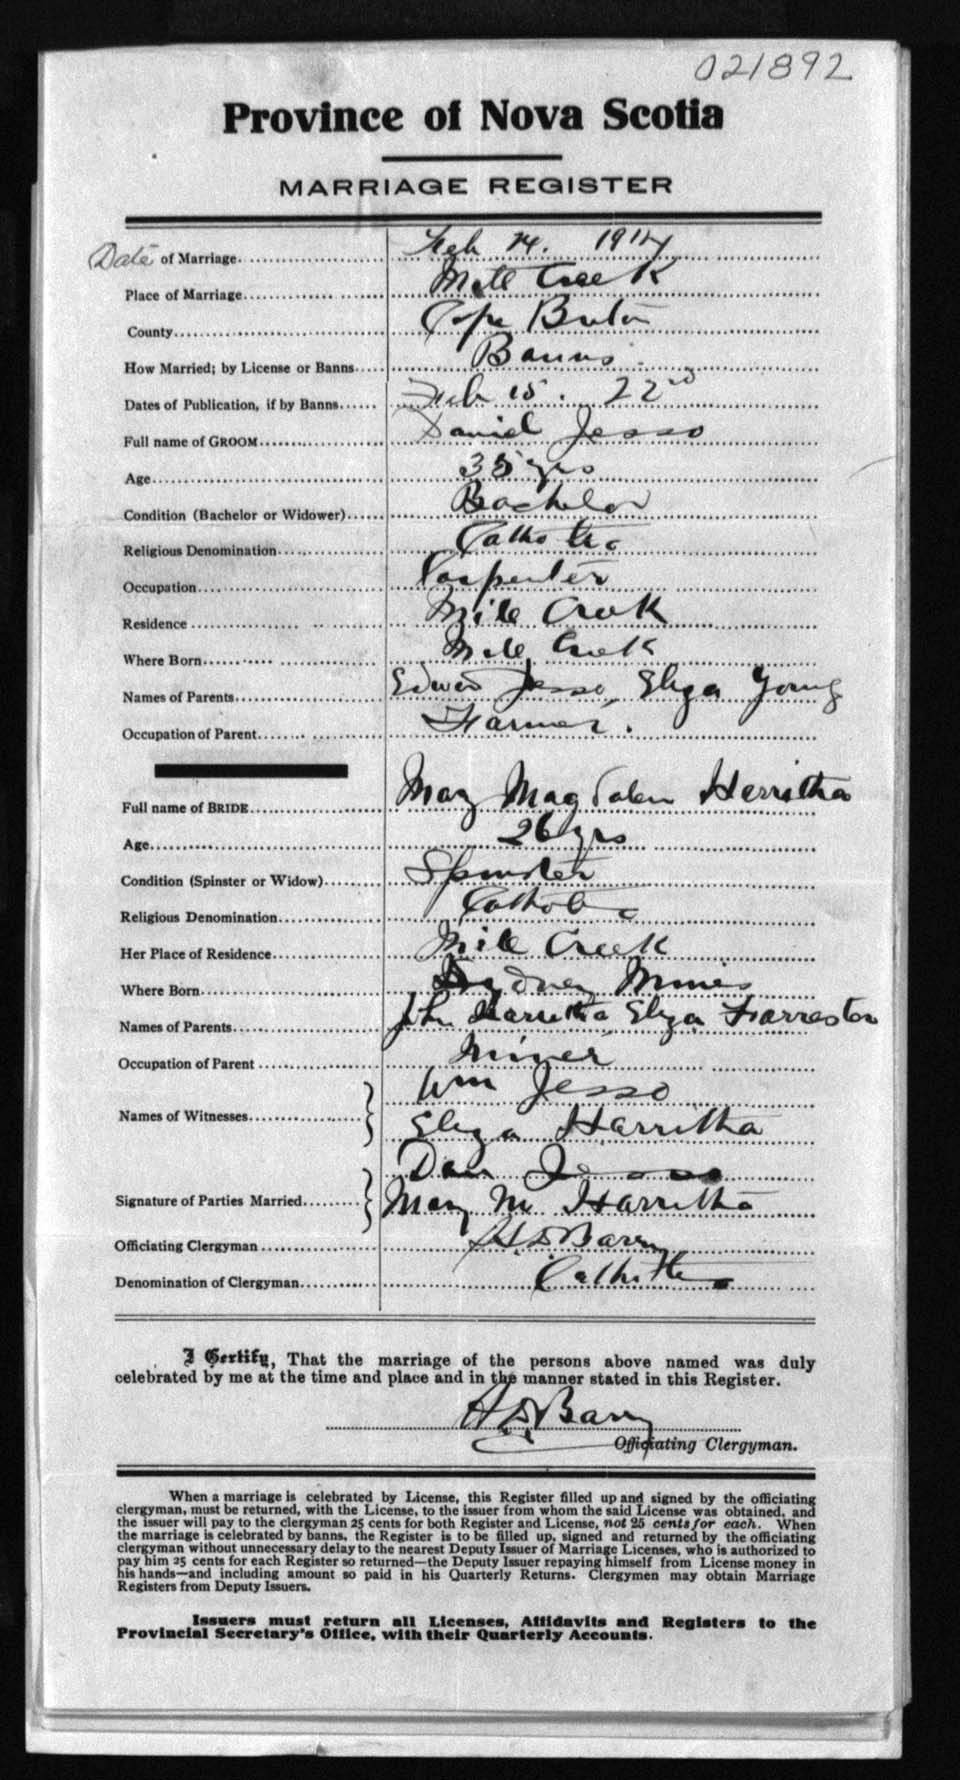 021892
Province of Nova Scotia
MARRIAGE REGISTER
Date of Marriage Feb 24. 1914
Place of Marriage Mill Creek
County Cape Breton
How Married; by License or Banns Banns
Dates of Publication, if by Banns Feb 15. 22nd
Full name of GROOM Daniel Jesso
Age 35 yrs
Condition (Bachelor or Widower) Bachelor
Religious Denomination Catholic
Occupation Carpenter
Residence Mill Creek
Where Born Mill Creek
Names of Parents Edward Jesso Eliza Young
Occupation of Parent Farmer.
Full name of BRIDE Mary Magdalen Harritha
Age 26 yrs
Condition (Spinster or Widow) Spinster
Religious Denomination Catholic
Her Place of Residence Mill Creek
Where Born Sydney Mines
Names of Parents John Harritha Eliza
Occupation of Parent Miner
Wm Jesso
Names of Witnesses
Eliza Harritha
Dan Jesso
Signature of Parties Married Mary M Harritha
Officiating Clergyman H D Barry
Denomination of Clergyman Catholic
I Certify, That the marriage of the persons above named was duly
celebrated by me at the time and place and in the manner stated in this Register.
H D Barry
Officiating Clergyman.
When a marriage is celebrated by License, this Register filled up and signed by the officiating
clergyman, must be returned, with the License, to the issuer from whom the said License was obtained, and
the issuer will pay to the clergyman 25 cents for both Register and License, not 25 cents for each. When
the marriage is celebrated by banns, the Register is to be filled up, signed and returned by the officiating
clergyman without unnecessary delay to the nearest Deputy Issuer of Marriage Licenses, who is authorized to
pay him 25 cents for each Register so returned—the Deputy Issuer repaying himself from License money in
his hands—and including amount so paid in his Quarterly Returns. Clergymen may obtain Marriage
Registers from Deputy Issuers.
Issuers must return all Licenses, Affidavits and Registers to the
Provincial Secretary's Office, with their Quarterly Accounts.